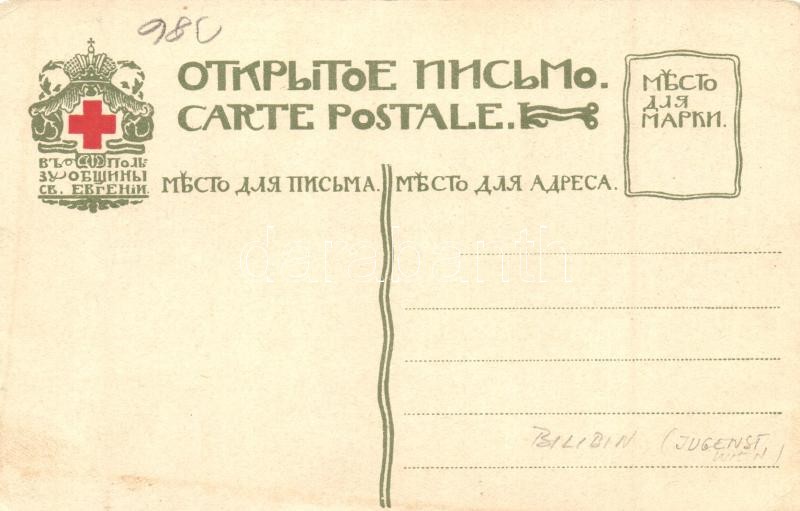 980
ОТКРЫТОЕ ПИСЬМО.
CARTE POSTALE.
МѢСТО
ДЛЯ
МАРКИ.
ВЪ ПОЛЬ
ЗУ ОБЩИНЫ
СВ. ЕВГЕНІИ.
МѢСТО ДЛЯ ПИСЬМА.
МѢСТО ДЛЯ АДРЕСА.
darabanth
BILIBIN (JUGENST.